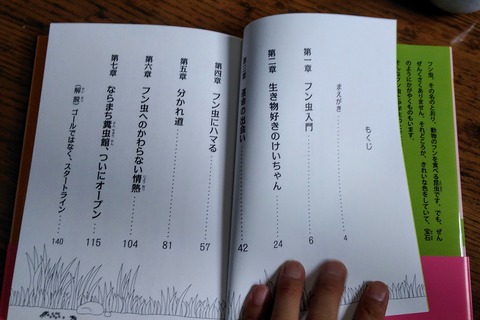 フン虫、その名のとおり、動物のフンを食べる昆虫です。でも、ぜん
ぜんくさくありません。それどころか、きれいな色をしていて、宝石
のようにかがやくものもいます。
もくじ
まえがき 4
第一章 フン虫入門 6
第二章 生き物好きのけいちゃん 24
第三章 運命の出会い 42
第四章 フン虫にハマる 57
第五章 分かれ道 81
第六章 フン虫へのかわらない情熱 104
第七章 ならまち糞虫館、ついにオープン 115
〈解説〉ゴールではなく、スタートライン 140